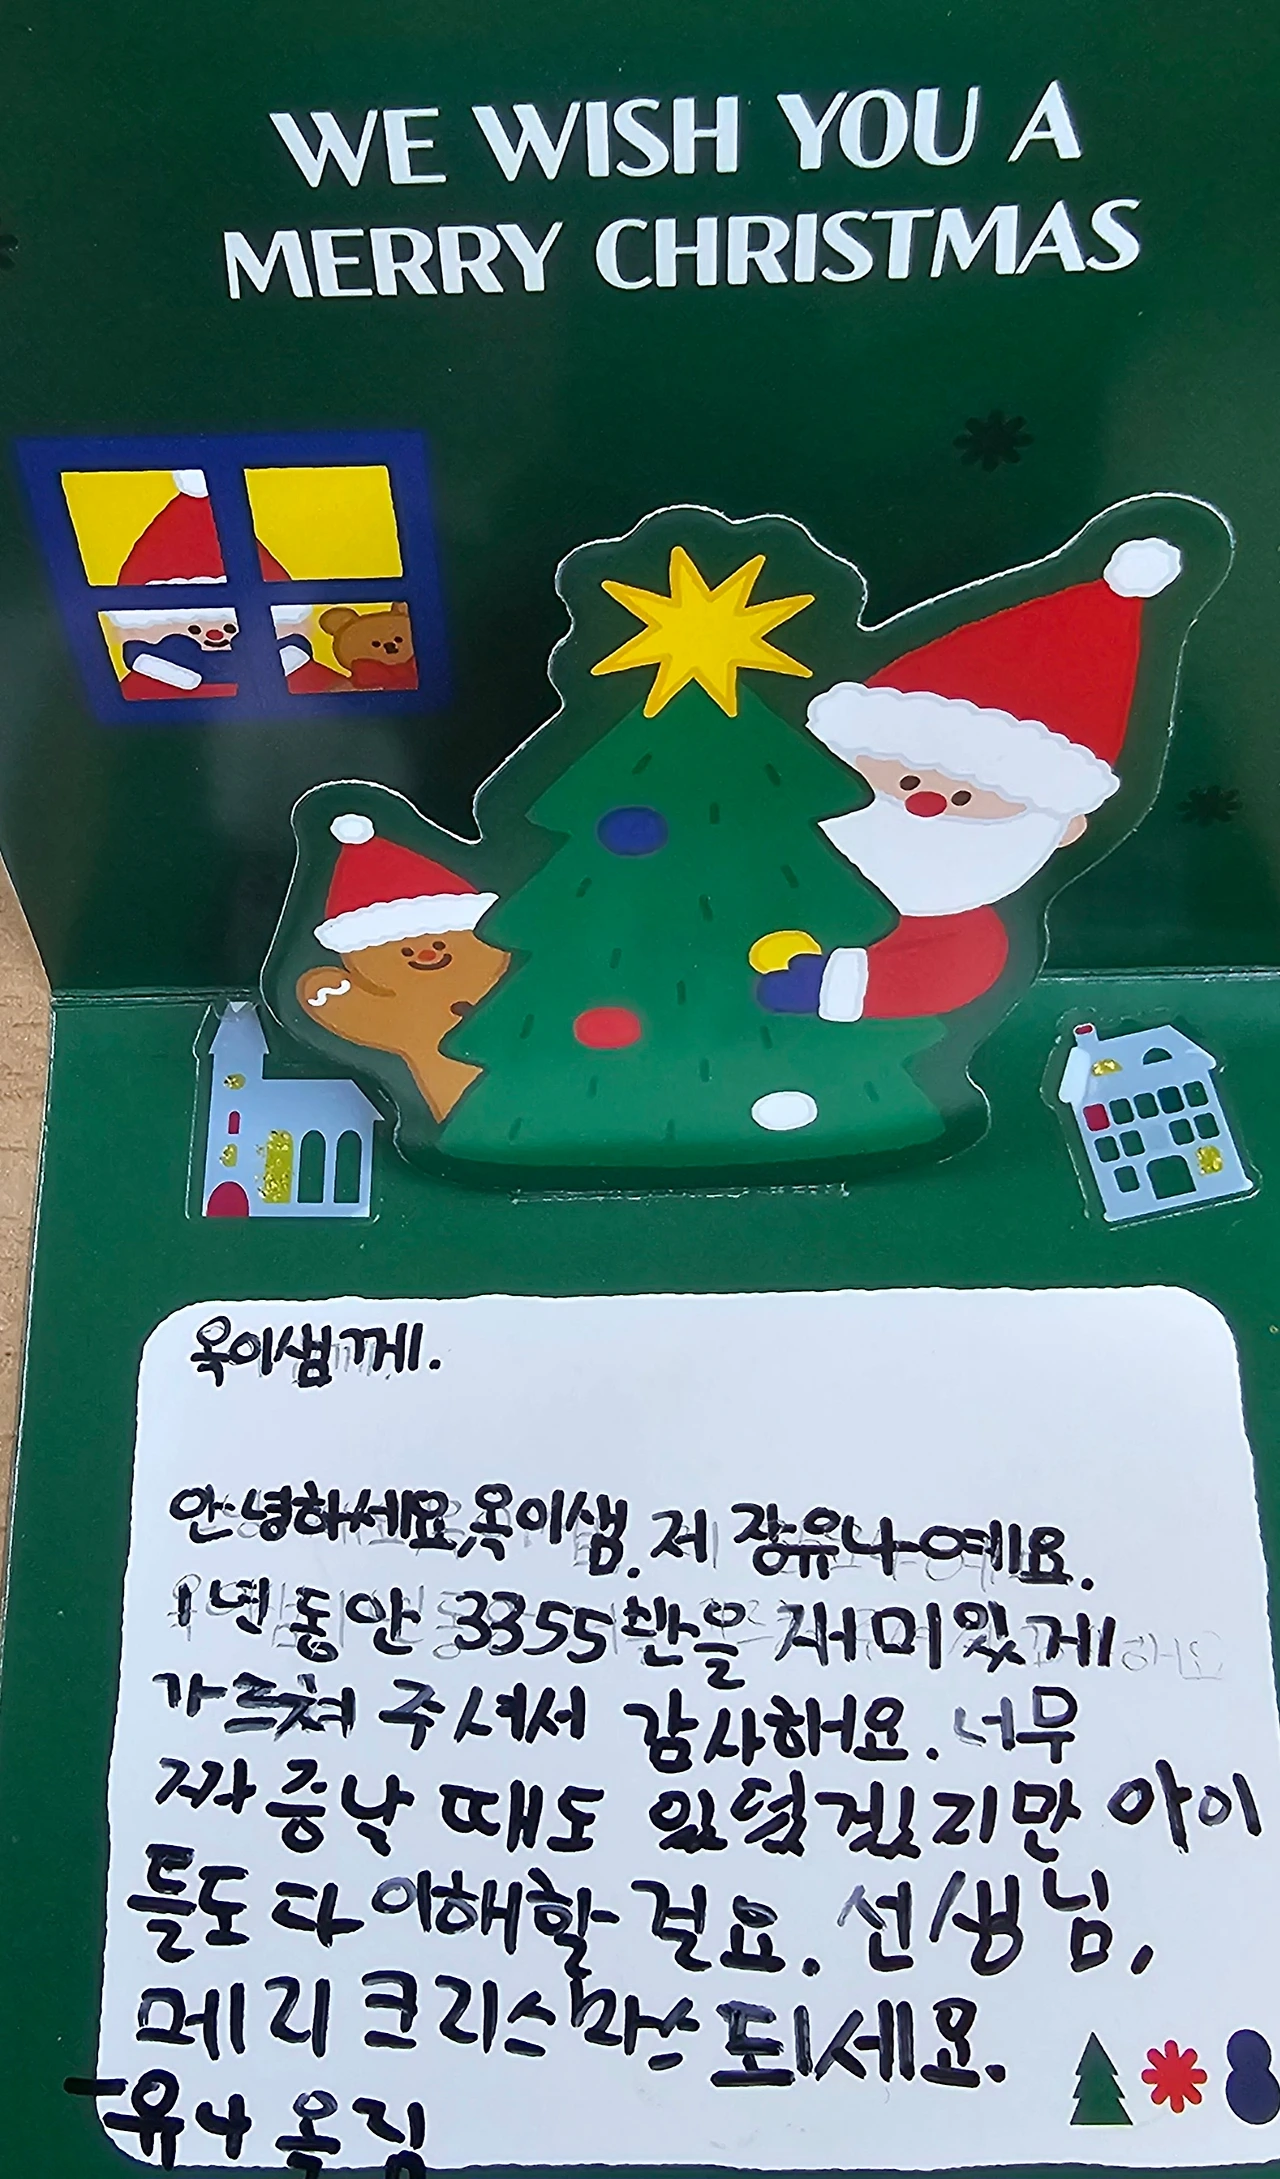 WE WISH YOU A
MERRY CHRISTMAS
옥이샘께.
안녕하세요, 옥이샘. 저 장유나예요.
1년 동안 3355반을 재미있게
가르쳐 주셔서 감사해요. 너무
짜증날 때도 있었겠지만 아이
들도 다 이해할 걸요. 선생님,
메리 크리스마스 되세요.
-유나 옮림